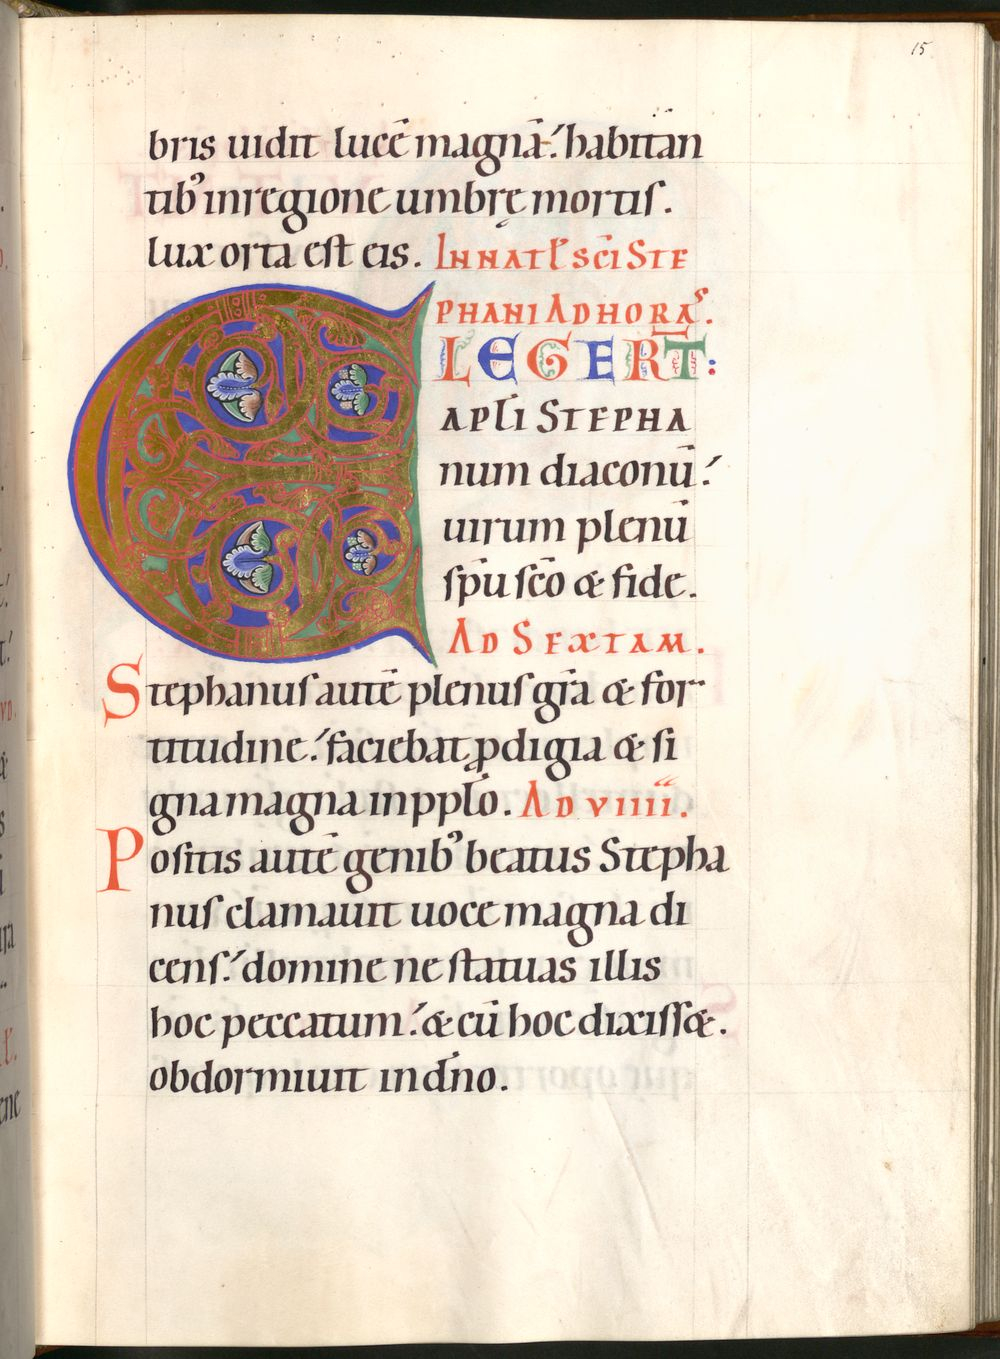 15
bris uidit lucē magnā. habitan
tib᾽ in regione umbrę mortis.
lux orta est eis. IN NAT̄L SC̄I STE
PHANI AD HORAS.
ELEGERT̄:
APL̄I STEPHA
num diaconū.
uirum plenū
sp̄u sc̄o & fide.
AD SEXTAM.
Stephanus autē plenus gr̄a & for
titudine. faciebat ꝓdigia & si
gna magna in ppl̄o. AD VIIII.
Positis autē genib᾽ beatus Stepha
nus clamauit uoce magna di
cens. domine ne statuas illis
hoc peccatum. & cū hoc dixiss&.
obdormiuit in dn̄o.